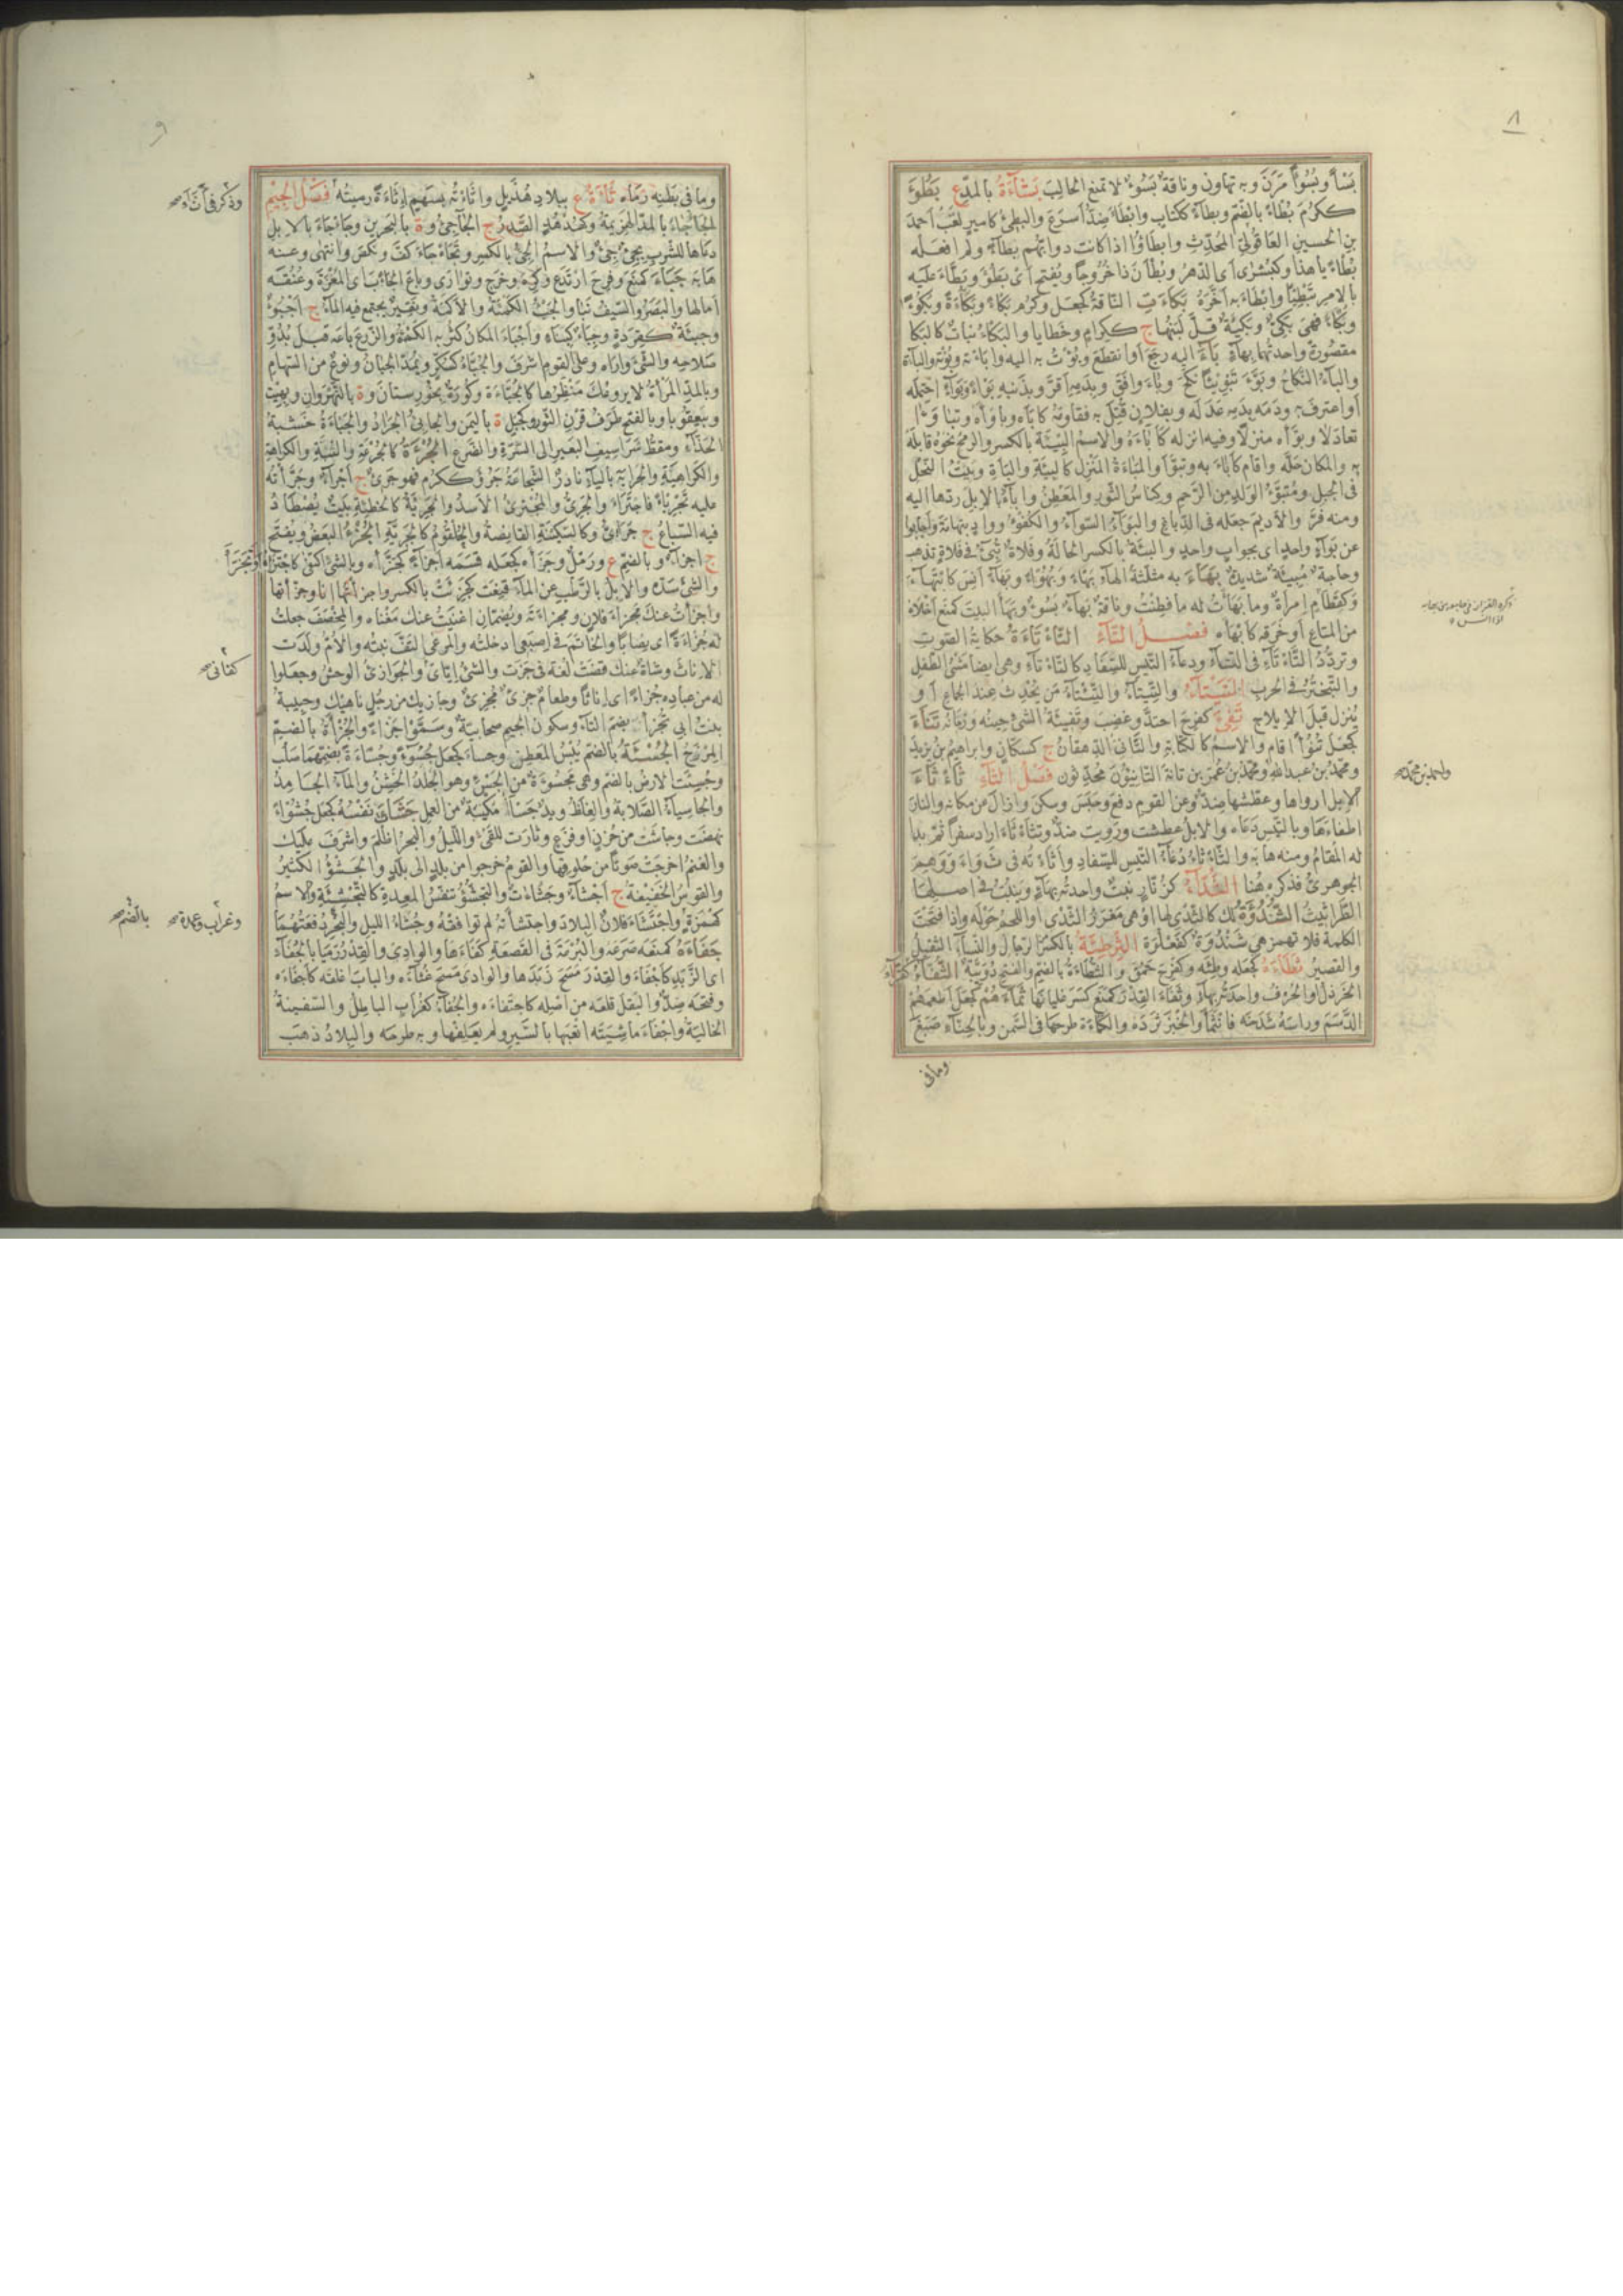 ٨
بَسْأً وبُسُوْأً مَرَنَ وبه تهاون وناقة بَسُوءٌ لا تمنع الحالب بَشَآءَةُ بالمدّ ع بَطُؤَ
ككرُمَ بُطْاءً بالضم وبطآءً ككتاب وابطاءَ ضدّ اسرع والبطئ كاميرٍ لقبُ احمدَ
بن الحسين العاقوليّ المحدِّث وابطَاؤُا اذا كانت دوابّهم بِطآءً ولم افعله
بُطْاءً يا هذا وكبُشرٰى اى الدهرَ وبُطْآنَ ذا خُرُوجًا ويُفتح اى بَطُؤَ وبَطَّاءَ عليه
بالامر تبطِيًا وابطَاءَ به اخَّرَهُ بَكَاءَتِ الناقةُ كجعل وكرُم بَكاءً وبَكاءَةً وبُكُوءً
وبُكاءً فهى بَكِئٌ وبَكِيئَةٌ قلّ لبَنُها ج ككِرامٍ وخطايا والبُكاءُ نباتٌ كالبَكا
مقصورةً واحدتُهما بهآءٍ بَآءَ اليه رجع او انقطع وبُؤْتُ به اليه وابَاءْتُه وبُؤْتُه والبآءَة
والبآءُ النكاحُ وبَوَّءَ تَبْوِيئًا نكح وبَاءَ وافق وبدمه اقرّ وبذنبه بَوْاءً وبَوَآءً احتمله
او اعترف به ودمَه بدمِه عَدَلَه وبفلانٍ قُتِل به فقاومَه كاَبَاءَه وباوَأَه وتباوَءَا
تعادلا وبوَّأه منزلًا وفيه انزله كاَبَاءَهُ والاسمُ البِيْئَة بالكسر والرمحَ نحوَهُ قابلَهُ
به والمكانَ حَلَّه واقام كاَبَاءَ به وتبوّأ والمَباءَةُ المَنْزِل كالبِيئَةِ والباءَةِ وبَيْتُ النحلِ
فى الجبل ومُتَبَوَّءُ الولد من الرَّحِم وكِناسُ الثور والمَعْطِنُ وابآءَ الابلَ ردّها اليه
ومنه فَرَّ والاديمَ جعله فى الدِّباغ والبَوَآءُ السَّوآءُ والكفؤُ ووادٍ بتِهامَةَ واجابوا
عن بَوَآءٍ واحدٍ اى بجوابٍ واحدٍ والبِيئَةُ بالكسر الحالَةُ وفلاةٌ تُبِئُ فى فلاةٍ تذهب
وحاجةٌ مُبِيئَةٌ شديدةٌ بَهَاءَ به مثلثةَ الهآءِ بَهْاءً وبُهُوْاءً وبَهَآءً اَنِسَ كابْتَهَاءَ
وكقَطَامِ امرأةٌ وما بَهَأْتُ له ما فطِنْتُ وناقةٌ بَهآءٌ بَسُوءٌ وبَهَأَ البيتَ كمنع اخلاهُ
من المتاع او خَرَقه كاَبْهَاَه فَصْلُ التَّآءِ التَّاْءَتَاءَةُ حكايةُ الصوتِ
وتردُّدُ التَّاءْتَآءِ فى التآء ودعآءُ التيس للسِّفَاد كالتَّاءْتَآءِ وهى ايضا مَشْىُ الطفلِ
والتبختُرُ فى الحرب التَّيْتَآءُ والتِّيتآءُ والتِّئْتآءُ من يُحْدِث عند الجماع او
يُنزل قبل الايلاج تَفِئَ كفرِحَ احتدَّ وغضِبَ وتَفِيئَةُ الشئِ حِينُه وزمانُه تَنَاءَ
كجعل تُنُوْأً اقام والاسمُ كالكتابةِ والتّانئُ الدِّهقانُ ج كسكّانٍ وابراهيمُ بن يزيدَ
ومحمدُ بن عبدالله ومحمدُ بن عمر بن تانةَ التانِئِيُّونَ محدِّثون فَصْلُ الثَّآءِ ثَاْءثَاءَ
الابلَ ارواها وعطّشها ضدٌّ وعن القوم دفع وحبَس وسكَّن وازال عن مكانه والنارَ
اطفاءَها وبالتيس دعاه والابلُ عطِشت ورَوِيت ضدٌّ وتثأثأَ اراد سفرًا ثم بدا
له المُقامُ ومنه هابَه والثَّاءْثَاءُ دُعآءُ التيس للسِّفاد واَثَاءْتُه فى ثَواءَ ووهِمَ
الجوهرىُّ فذكره هُنا الثُّدّآءُ كزُنّارٍ نبتٌ واحدتُه بهآءٍ وينبُتُ فى اصلها
الطَّراثيثُ الثُّنْدُؤَةُ لك كالثَّدْى لها او هى مَغْرِزُ الثَّدْى او اللحمُ حَوْلَه واذا فتحتَ
الكلمةَ فلا تهمز هى ثَنْدُوَةٌ كفَعْلُوَة الثِّرْطِئَةُ بالكسر الرجال والنسآءِ الثقيلُ
والقصيرُ ثَطَاءَهُ كجعله وطِئَه وكفرِحَ حَمُقَ والثُّطْاءَةُ بالضم والفتح دُوَيْبَّةٌ الثُّفآءُ كقُرّآءٍ
الخردلُ او الحُرْفُ واحدتُه بهآءٍ وثَفَاءَ القِدْرَ كمنع كسر غليانَها ثَمَاءَهُمْ كجعل اطعمهُمْ
الدَّسَمَ وراسَه شدخه فانثماَ والخبزَ ثردَه والكَمْأَةَ طرحها فى السمن وبالحنّآء صَبَغَ
وما فى
واحمد بن محمد صح
٩
وما فى بَطْنِه رَمَاه ثَاءَةُ ع ببلادِ هُذَيلٍ واَثَاءْتُه بسَهمٍ اِثَاءَةً رميتُه فَصْلُ الْجِيْمِ
الجَآجآءُ بالمدّ الهزيمةُ وكهُدْهُدٍ الصدرُ ج الجآجِئُ وة بالبحرين وجَاءْجَاءَ بالابلِ
دعاها للشرب بجِئْ جِئْ والاسمُ الجِئُ بالكسر وتَجَاءْجَاءَ كفَّ ونكَص وانتهى وعنه
هابَه جَبَاءَ كمنَع وفرِحَ ارتدع وكرِه وخرج وتوارٰى وباع الجَابَ اى المَغْرَةَ وعُنُقَه
امالها والبَصَرُ والسيفُ نَبَا والجَبْءُ الكَمْأَةُ والاَكَمَةُ ونَقِيرٌ يجتمع فيه المآءُ ج اَجْبُؤٌ
وجِبَئَةٌ كقِرَدةٍ وجِبَاءٌ كنَبَاءٍ واَجْبَاءَ المكانُ كثُر به الكَمْأَةُ والزرعَ باعه قبل بُدُوِّ
صلاحه والشئَ واراه وعلى القوم اشرف والجُبَّاءُ كسُكَّرٍ ويُمدّ الجبانُ ونوعٌ من السهامِ
وبالمدِّ المرأةُ لا يَروعُك مَنظَرُها كالجُبّاءَة وكُورَةٌ بخُوزِستانَ وة بالنهروانِ وبهِيتَ
وببَعقُوبا وبالفتح طَرَفُ قرن الثور وكجبلٍ ة باليمن والجابئُ الجرادُ والجَبْاءَةُ خشبةُ
الحذّآء ومَقَطُّ شَراسيفِ البعير الى السُّرّة والضرع الجُرْءَةُ كالجُرْعَةِ والثُّبَةِ والكراهةِ
والكراهيةِ والجَرايةُ باليآء نادرٌ الشجاعةُ جَرُؤَ ككرُم فهو جَرِئٌ ج اَجْرآءُ وجَرَّأْتُه
عليه تَجْرِيئًا فاجترأَ والجَرِئُ والمُجْتَرِئُ الاسدُ والجَرِيئَةُ كالخطيئَةِ بيتٌ يُصْطَادُ
فيه السِّباعُ ج جَرَائِئُ وكالسِّكِّينَةِ القانِصَةُ والحُلقُومُ كالجِرِيَّةِ الجُزْءُ البعضُ ويُفتح
ج اجزآءٌ وبالضم ع ورَمْلٌ وجَزَأَه كجعله قسَمه اَجزآءً كجَزَّأَه وبالشئ اكتفى كاجتَزَأَ وتَجَزَّأَ
والشئَ شَدَّه والابلُ بالرُّطْب عن المآء قنِعَت كجَزِئَت بالكسر واجزأتُها انا وجزّأتُها
واَجْزَأتُ عنك مَجْزَاءَ فلانٍ ومَجْزَاءَتَه ويُضَمّان اغنيتُ عنك مَغْناه والمِخْصَفَ جعلتُ
له جُزْاءَةً اى نِصابًا والخاتمَ فى اِصبعى ادخلتُه والمَرعى التفّ نبتُه والاُمُّ ولدت
الاِناثَ وشاةٌ عنك قضَت لغةٌ فى جَزَت والشئُ اِيّاىَ والجَوازِئُ الوحشُ وجعلوا
له من عباده جُزْاءً اى اِناثًا وطعامٌ جَزِئٌ مُجْزِئٌ وجازِيكَ من رجُلٍ ناهيك وحبيبةُ
بنتُ ابى تُجْزأَة بضم التآء وسكون الجيم صحابيةٌ وسمَّوْا جَزْاءً والجُزْأَةُ بالضمّ
المِرْزَحُ الجُسْئَةُ بالضم يُبْسُ المَعْطِن وجسأَ كجعل جُسُوءً وجُسْاءَةً بضمّهما صَلُب
وجُسِئَت الارضُ بالضم وهى مَجْسُوءَةٌ من الجَسْءِ وهو الجِلدُ الخَشِنُ والمآءُ الجامِدُ
والجاسِيآءُ الصلابةُ والغِلَظُ ويدٌ جَسْآءُ مُكْنِبَةٌ من العمل جَشَأَتْ نفسُه كجعل جُشُوْاءً
نهضت وجاشت من حُزْنٍ او فزَعٍ وثارت للقئ والليلُ والبحرُ اظلم واشرف عليك
والغنمُ اخرجَت صوتًا من حُلُوقِها والقومُ خرجوا من بلدٍ الى بلدٍ والجَشْؤُ الكثيرُ
والقوسُ الخفيفةُ ج اَجشآءُ وجَشَاءاتٌ والتجشُّؤُ تنفُّسُ المعدة كالتجشِئَةِ والاسمُ
كهُمَزةٍ واجتشأَ فلانٌ البلادَ واجتشأتْهُ لم توافقْهُ وجُشَاءُ الليل والبحرِ دفعتُهما
جَفَأَهُ كمنعَه صرَعَه والبُرْمَةَ فى القَصعة كفَأَها والوادى والقِدرُ رَمَيا بالجُفآء
اى الزَّبَد كاَجْفَأَ والقِدْرَ مسح زَبَدَها والوادىَ مسح غُثآءَه والبابَ اغلقه كاجفاَه
وفتحه ضدٌّ والبقلَ قلعه من اصله كاجتفاءَه والجُفآءُ كغُرابٍ الباطلُ والسفينةُ
الخاليةُ واَجْفَأَ ماشيتَه اتعبها بالسير ولم يَعْلِفْها وبه طرحه والبلادُ ذهب
وذكر فى أثآء صح
كفانى صح
وغراب وعمدة صح
بالضم صح